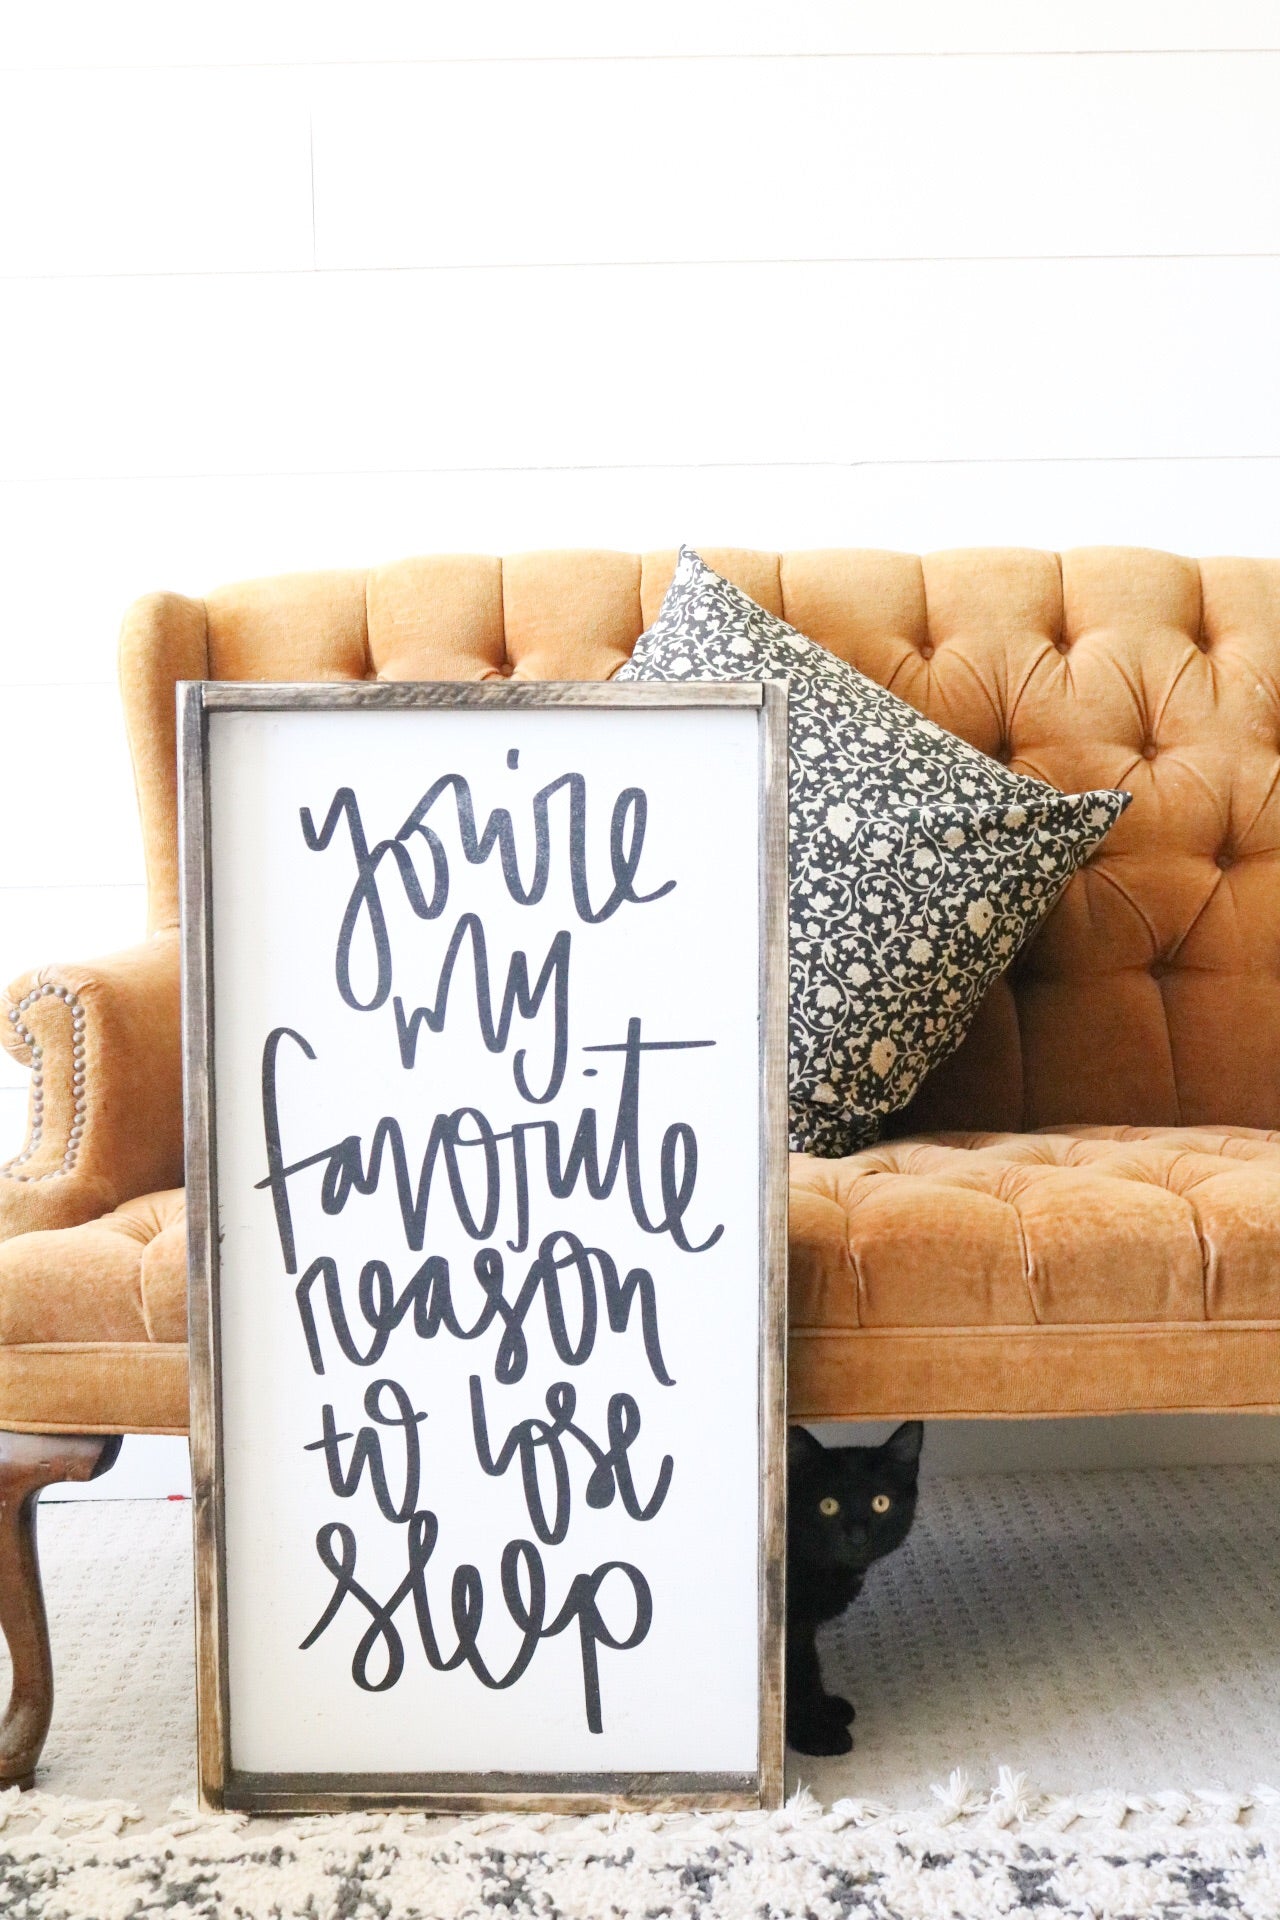 you're
my
favorite
reason
to lose
sleep